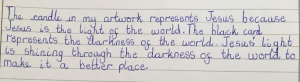 The candle in my artwork represents Jesus because
Jesus is the light of the world. The black card
represents the darkness of the world. Jesus' light
is shining through the darkness of the world to
make it a better place.